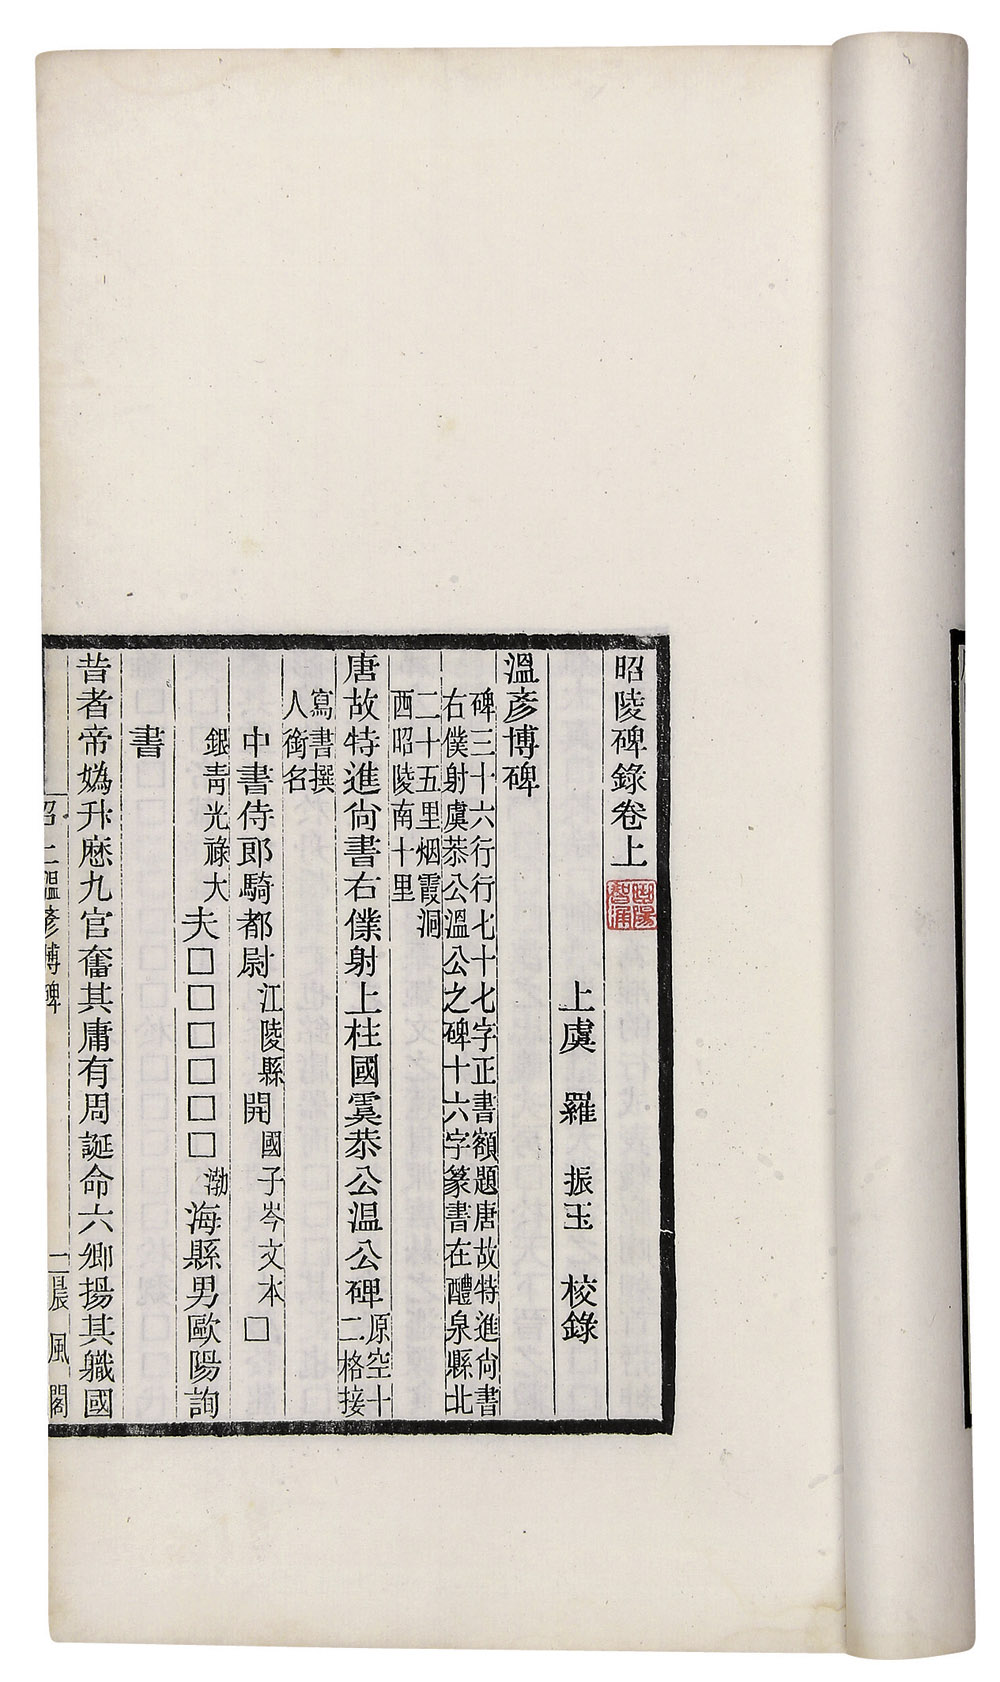 昭陵碑錄卷上
上虞 羅 振玉 校錄
溫彥博碑
碑三十六行行七十七字正書額題唐故特進尙書
右僕射虞恭公溫公之碑十六字篆書在醴泉縣北
二十五里烟霞洞
西昭陵南十里
唐故特進尙書右僕射上柱國虞恭公温公碑原空十
二格接
寫書撰
人銜名
中書侍郎騎都尉江陵縣開國子岑文本□
銀青光祿大夫□□□□□□渤海縣男歐陽詢
書
昔者帝嬀升庶九官奮其庸有周誕命六鄉揚其職國
昭上溫彥博碑
一 晨風閣